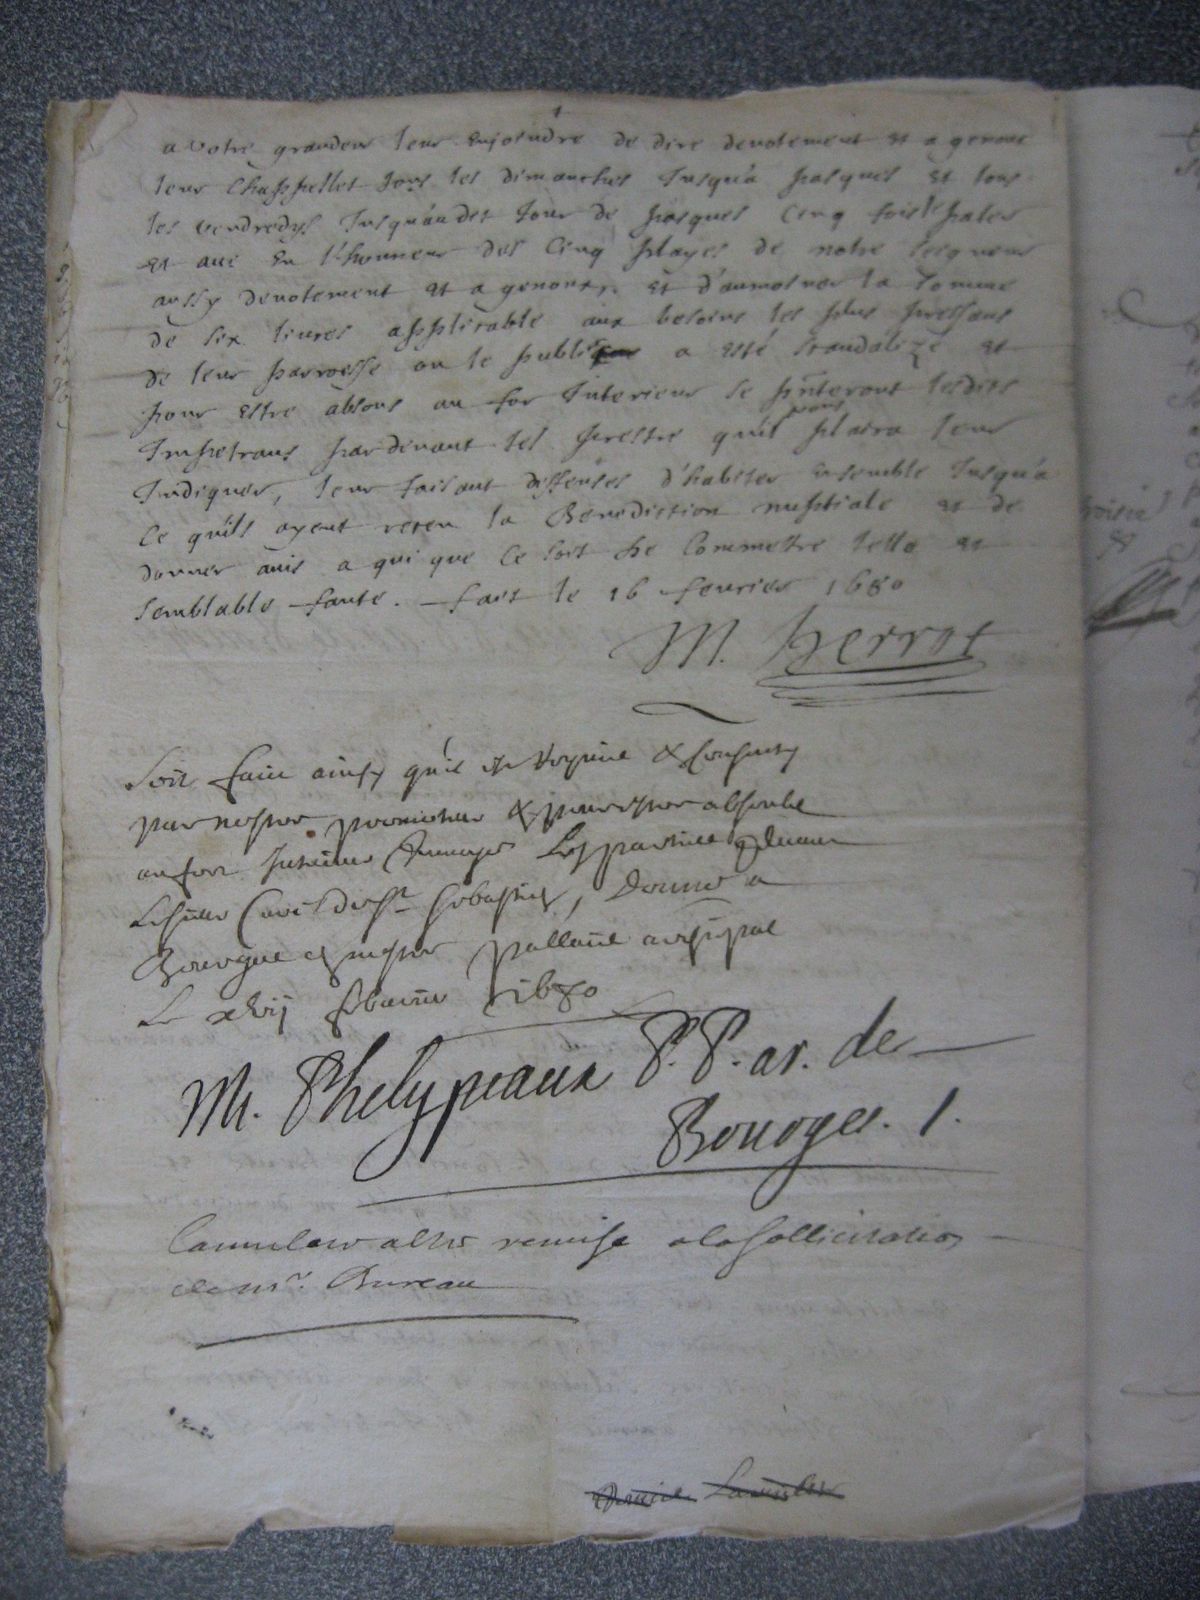 a votre grandeur leur enjoindre de dire devotement et a genoux
leur chappellet tous les dimanches jusqu'a pasques et tous
les vendredys jusqu'audit jour de pasques cinq fois le pater
et ave en l'honneur des cinq playes de notre seigneur
aussy devotement et a genoux, et d'aumosner la somme
de six livres applicable aux besoins les plus pressans
de leur parroisse ou le public a esté scandalizé et
pour estre absous au for interieur se pnteront lesdits
impetrans pardevant tel prestre qu'il vous plaira leur
indiquer, leur faisant deffenses d'habiter ensemble jusqu'a
ce qu'ils ayent receu la benediction nuptiale et de
donner avis a qui que ce soit de commettre telle et
semblable faute. fait le 16 fevrier 1680
M. Perrot
Soit faict ainsy qu'il est requis & consenty
par nostre promoteur & pour estre absoubs
au for interieur les parties
curé de St Sebastien, donné a
Bourges en nostre pallais archiepal
Le xvij febvrier 1680
M. Phelypeaux P. P. ar. de
Bourges. 1.
remise a la sollicitation
de mr. Bureau